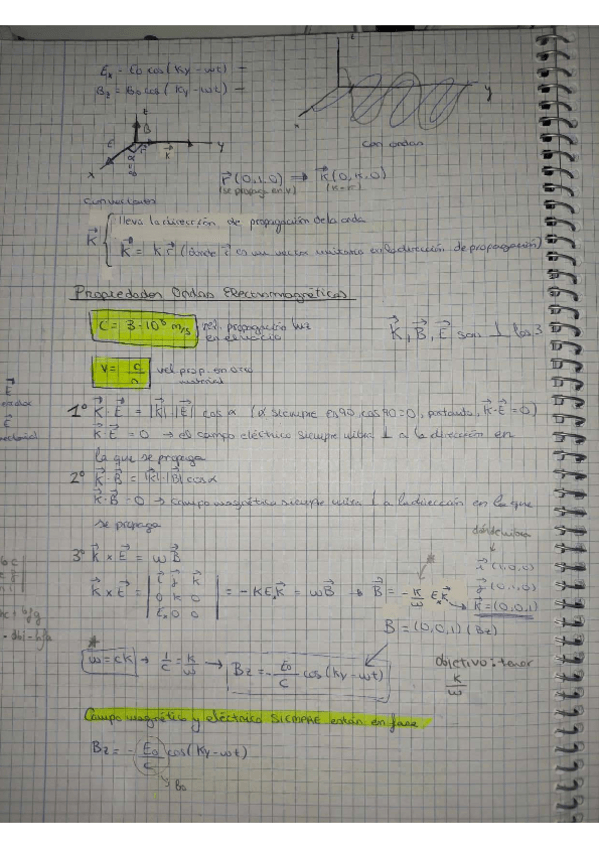 Ex = E0 cos(Ky - wt) =
Bz = B0 cos(Ky - wt) =
z
B
E
r
K
y
x
y
x
con ondas
r⃗ (0,1,0) → K⃗ (0,K,0)
(se propaga en y)
lleva la dirección de propagación de la onda
K⃗
K⃗ = K r⃗ (donde r⃗ es un vector unitario en la dirección de propagación)
Propiedades Ondas Electromagnéticas
C = 3·10⁸ m/s vel. propagación luz en el vacío
K⃗, B⃗, E⃗ son ⊥ los 3
V = c/n vel prop. en otro material
1º K⃗·E⃗ = |K⃗|·|E⃗| cos α (α siempre es 90, cos 90=0, por tanto, K⃗·E⃗ = 0)
K⃗·E⃗ = 0 → el campo eléctrico siempre vibra ⊥ a la dirección en
la que se propaga
2º K⃗·B⃗ = |K⃗|·|B⃗| cos α
K⃗·B⃗ = 0 → campo magnético siempre vibra ⊥ a la dirección en la que
se propaga
3º K⃗ x E⃗ = w B⃗
K⃗ x E⃗ = | i⃗ j⃗ k⃗ | = - K Ex K⃗ = w B⃗ → B⃗ = - K/w Ex K⃗
0 K 0
Ex 0 0
i⃗ (1,0,0)
j⃗ (0,1,0)
K⃗ = (0,0,1)
B = (0,0,1) (Bz)
* w = cK → 1/c = K/w → Bz = - E0/c cos(Ky - wt)
objetivo: tener
K/w
Campo magnético y eléctrico SIEMPRE están en fase.
Bz = - E0/c cos(Ky - wt)
B0